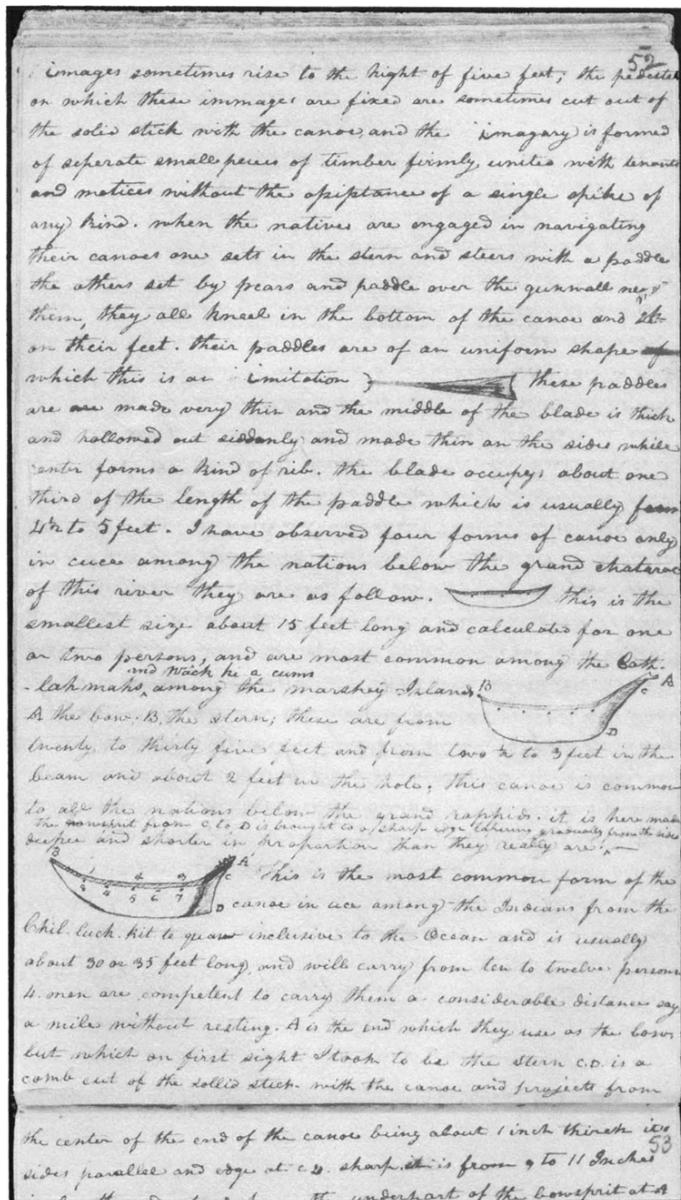 52
images sometimes rise to the hight of five feet; the pedestal
on which these immages are fixed are sometimes cut out of
the solid stick with the canoe, and the imagary is formed
of seperate small pieces of timber firmly united with tenants
and motices without the assistance of a single spike of
any kind. when the natives are engaged in navigating
their canoes one sets in the stern and steers with a paddle
the others set by pears and paddle over the gunwall next
them, they all kneel in the bottom of the canoe and set
on their feet. their paddles are of an uniform shape of
which this is an imitation these paddles
are made very thin and the middle of the blade is thick
and hollowed out siddonly and made thin on the sides while
center forms a kind of rib. the blade occupys about one
third of the length of the paddle which is usually from
4½ to 5 feet. I have observed four forms of canoe only
in uce among the nations below the grand chatarac
of this river they are as follow. this is the
smallest size about 15 feet long and calculated for one
or two persons, and are most common among the Cath-
and Wâck ke a cums
-lahmahs among the marshey Islands B A C D
A the bow. B. the stern; these are from
twenty to thirty five feet and from two ½ to 3 feet in the
beam and about 2 feet in the hole; this canoe is common
to all the nations below the grand rappids. it is here made
the bowsprit from C to D is brought to a sharp edge tapering gradually from the sides
deeper and shorter in proportion than they really are.
B A C D 1 2 3 4 5 6 7 This is the most common form of the
canoe in uce among the Indians from the
Chil-luck-kit-te-quaw inclusive to the Ocean and is usually
about 30 or 35 feet long, and will carry from ten to twelve persons
4. men are competent to carry them a considerable distance say
a mile without resting. A is the end which they use as the bow
but which on first sight I took to be the stern C.D. is a
comb cut of the sollid stick with the canoe and projects from
53
the center of the end of the canoe being about 1 inch thick it's
sides parallel and edge at C D. sharp. it is from 9 to 11 Inches
the underpart of the bowsprit at A